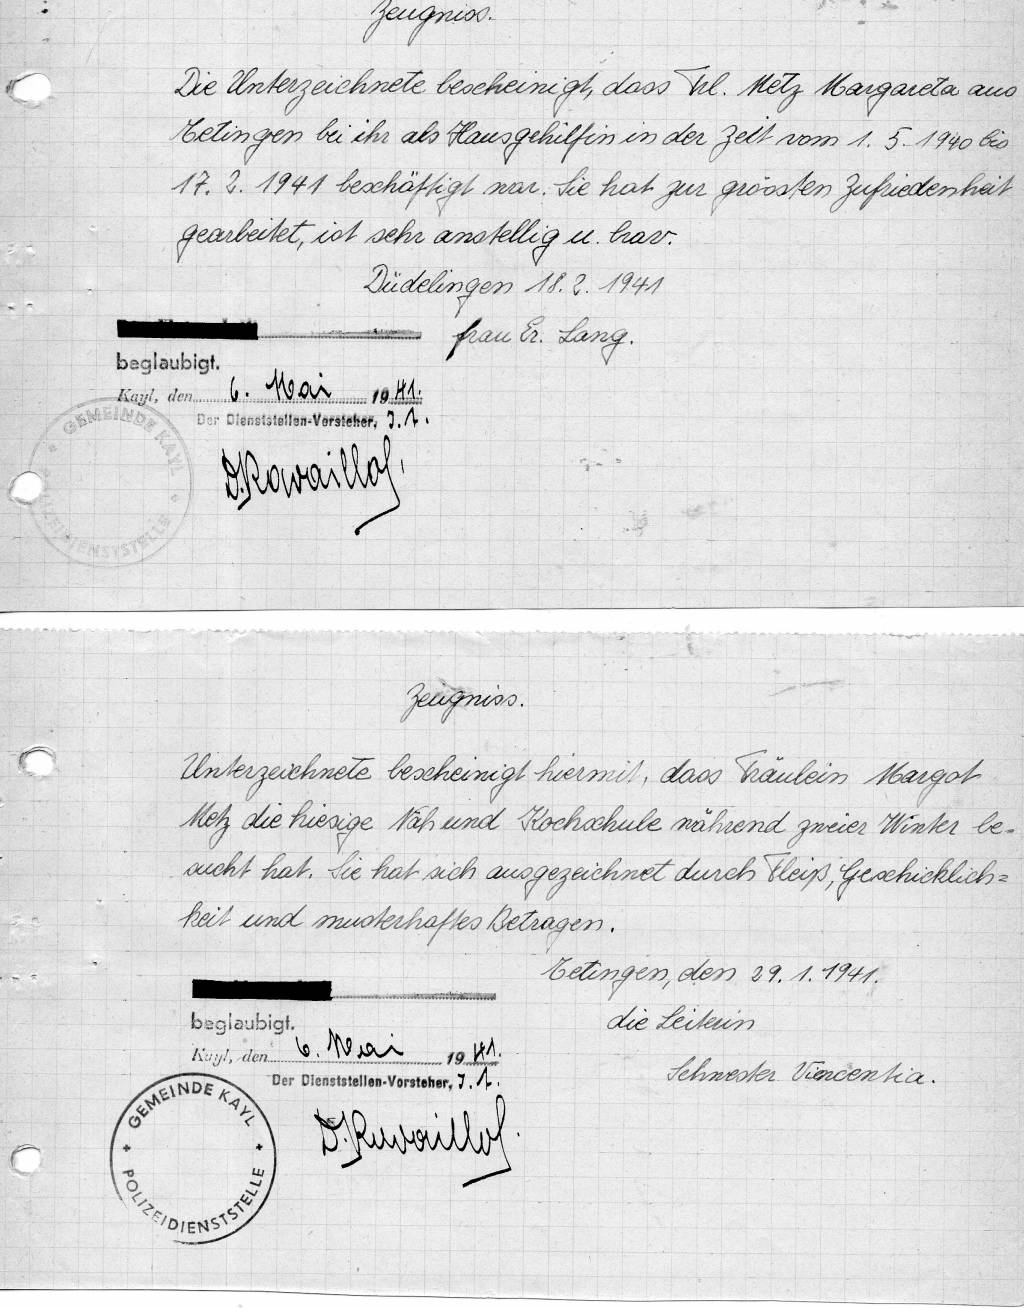 Zeugniss.
Die Unterzeichnete bescheinigt, dass Frl. Metz Margareta aus
Tetingen bei ihr als Hausgehilfin in der Zeit vom 1. 5. 1940 bis
17. 2. 1941 beschäftigt war. Sie hat zur grössten Zufriedenheit
gearbeitet, ist sehr anstellig u. brav.
Düdelingen 18. 2. 1941
frau Er. Lang.
beglaubigt.
Kayl, den 6. Mai 1941.
Der Dienststellen-Vorsteher, J.
GEMEINDE KAYL
POLIZEIDIENSTSTELLE
Zeugniss.
Unterzeichnete bescheinigt hiermit, dass Fräulein Margot
Metz die hiesige Näh und Kochschule während zweier Winter be-
sucht hat. Sie hat sich ausgezeichnet durch Fleiß, Geschicklich=
keit und musterhaftes Betragen.
Tetingen, den 29. 1. 1941.
die Leiterin
Schwester Vincentia.
beglaubigt.
Kayl, den 6. Mai 1941.
Der Dienststellen-Vorsteher, J.
GEMEINDE KAYL
POLIZEIDIENSTSTELLE